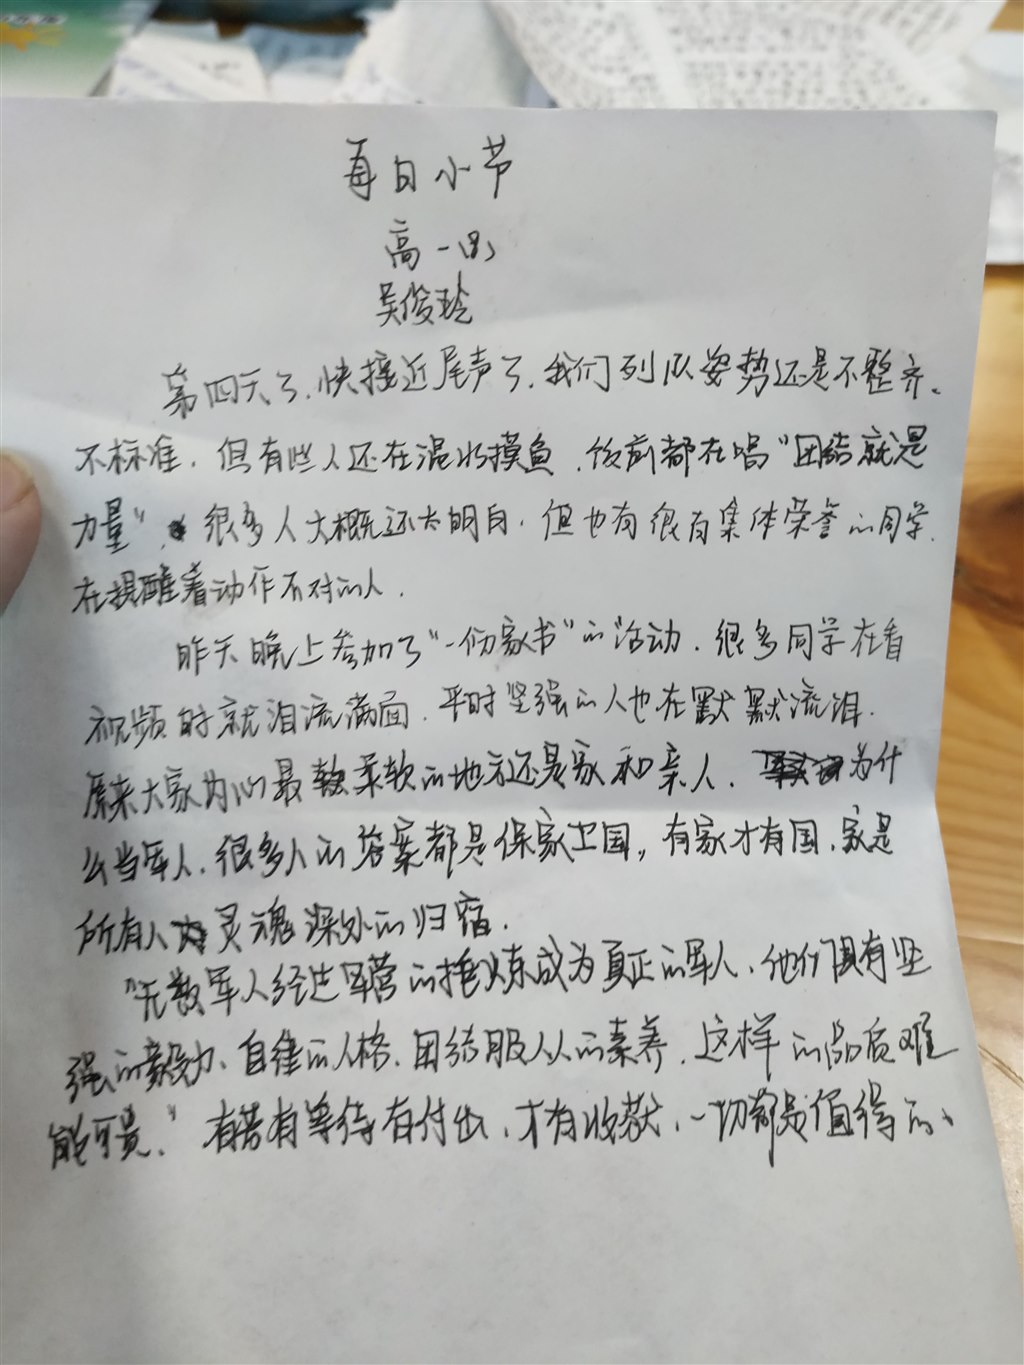 每日小节
高一(8)
吴俊玲
第四天了,快接近尾声了,我们列队姿势还是不整齐、
不标准,但有些人还在混水摸鱼,饭前都在唱“团结就是
力量”,很多人大概还不明白,但也有很有集体荣誉的同学,
在提醒着动作不对的人.
昨天晚上参加了“一份家书”的活动,很多同学在看
视频时就泪流满面,平时坚强的人也在默默流泪.
原来大家内心最柔软的地方还是家和亲人,为什
么当军人,很多人的答案都是保家卫国,有家才有国,家是
所有人灵魂深处的归宿.
“无数军人经过军营的捶炼成为真正的军人,他们具有坚
强的毅力、自律的人格、团结服从的素养,这样的品质难
能可贵.”有苦有等待有付出,才有收获,一切都是值得的、